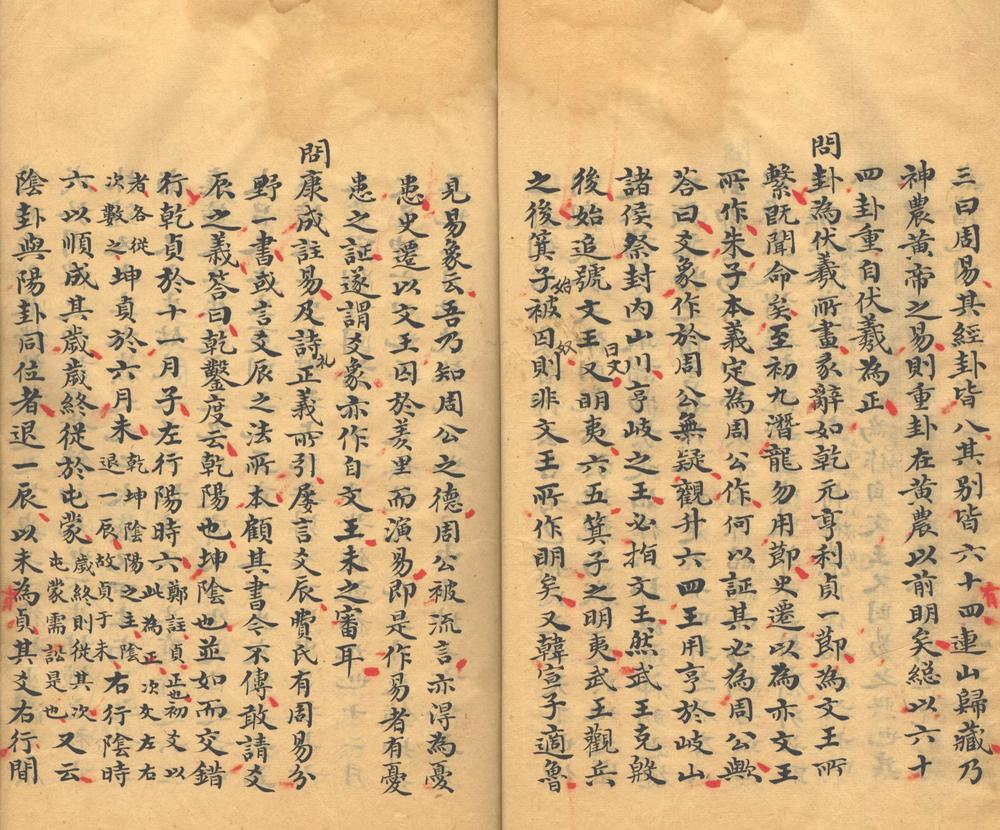 三曰周易其經卦皆八其別皆六十四連山歸藏乃
神農黃帝之易則重卦在黃農以前明矣總以六十
四卦重自伏羲為正
問卦為伏羲所畫彖辭如乾元亨利貞一節為文王所
繫既聞命矣至初九潛龍勿用節史遷以為亦文王
所作朱子本義定為周公作何以証其必為周公歟
荅曰爻象作於周公無疑觀升六四王用亨於岐山
諸侯祭封內山川亨岐之王必指文王然武王克殷
後始追號文王又曰文明夷六五箕子之明夷武王觀兵
之後箕子始被囚奴則非文王所作明矣又韓宣子適魯
見易象云吾乃知周公之德周公被流言亦得為憂
患史遷以文王囚於羑里而演易即是作易者有憂
患之証遂謂爻象亦作自文王未之審耳
問康成註易及詩礼正義所引屢言爻辰費氏有周易分
野一書或言爻辰之法所本顧其書今不傳敢請爻
辰之義答曰乾鑿度云乾陽也坤陰也並如而交錯
行乾貞於十一月子左行陽時六鄭註貞正也初爻以此為正次爻左右
者各從次數之坤貞於六月未乾坤陰陽之主陰退一辰故貞于未右行陰時
六以順成其歲歲終從於屯蒙歲終則從其次屯蒙需訟是也又云
陰卦與陽卦同位者退一辰以未為貞其爻右行間